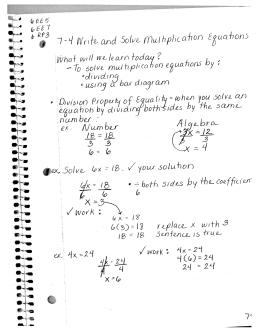 6EE5
6EE7
6RP3
7-4 Write and Solve Multiplication Equations
What will we learn today?
- To solve multiplication equations by:
• dividing
• using a bar diagram
• Division Property of Equality - when you solve an equation by dividing both sides by the same number:
ex: Number Algebra
18 = 18 3x = 12
3 3 3 3
6 = 6 x = 4
ex. Solve 6x = 18. ✓ your solution
6x = 18 • ÷ both sides by the coefficient
6 6 6
x = 3
✓ work:
6x = 18
6(3) = 18 replace x with 3
18 = 18 sentence is true
ex 4x = 24 ✓ work: 4x = 24
4x = 24 4(6) = 24
4 4 24 = 24
x = 6
7-